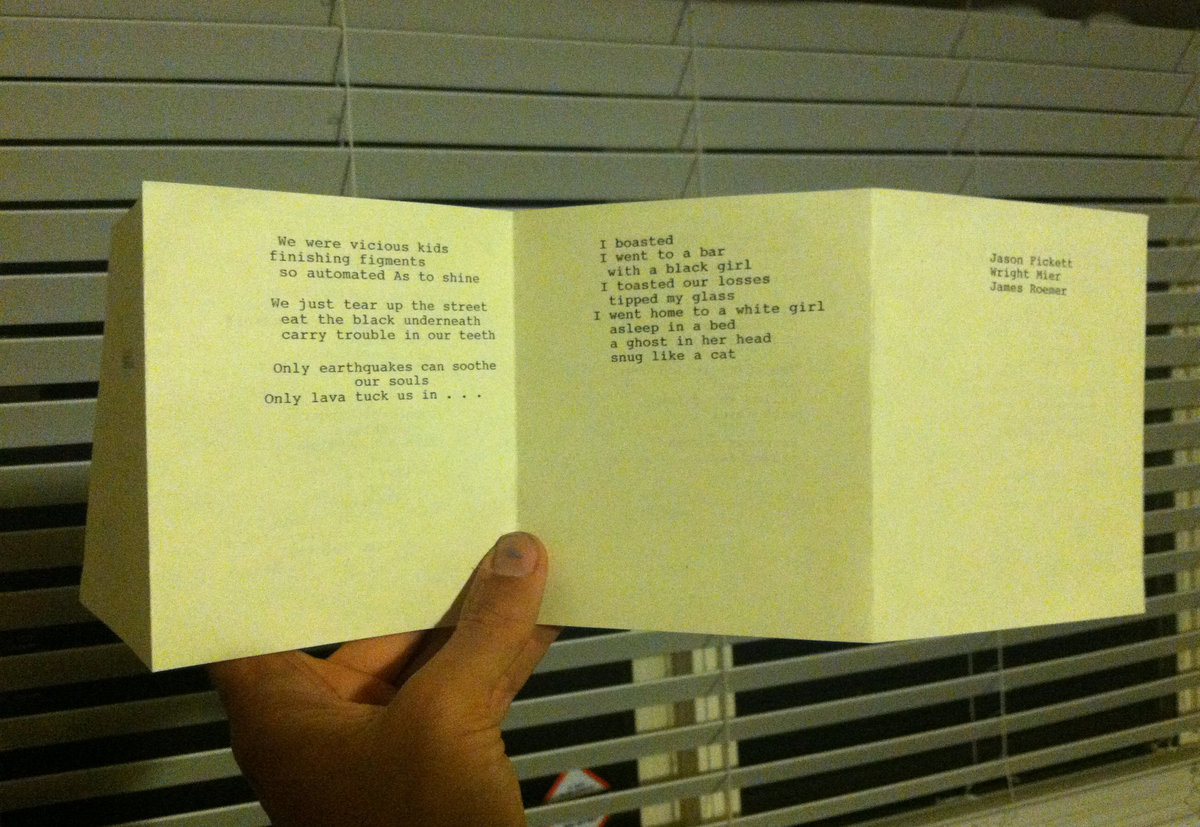 We were vicious kids
finishing figments
so automated As to shine
We just tear up the street
eat the black underneath
carry trouble in our teeth
Only earthquakes can soothe
our souls
Only lava tuck us in . . .
I boasted
I went to a bar
with a black girl
I toasted our losses
tipped my glass
I went home to a white girl
asleep in a bed
a ghost in her head
snug like a cat
Jason Pickett
Wright Mier
James Roemer